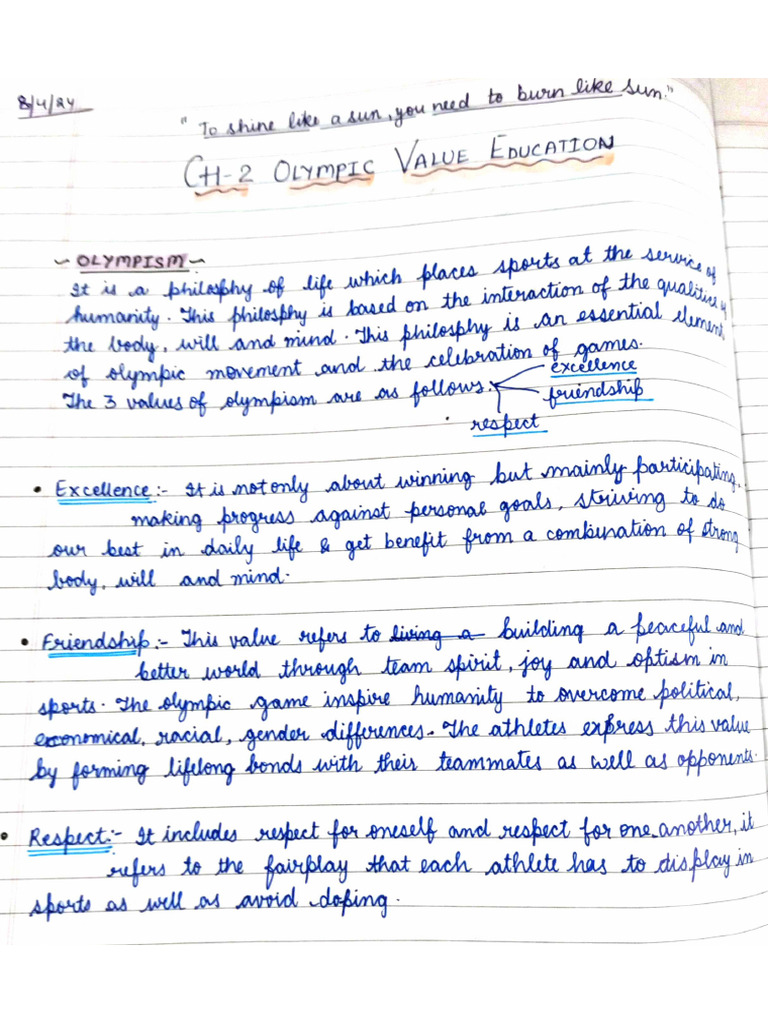 8/4/24
"To shine like a sun, you need to burn like sun."
CH-2 OLYMPIC VALUE EDUCATION
~ OLYMPISM ~
It is a philosphy of life which places sports at the service of
humanity. This philosphy is based on the interaction of the qualities of
the body, will and mind. This philosphy is an essential element
of olympic movement and the celebration of games.
The 3 values of olympism are as follows:
excellence
friendship
respect
• Excellence:- It is not only about winning but mainly participating,
making progress against personal goals, striving to do
our best in daily life & get benefit from a combination of strong
body, will and mind.
• Friendship:- This value refers to living a building a peaceful and
better world through team spirit, joy and optism in
sports. The olympic game inspire humanity to overcome political,
economical, racial, gender differences. The athletes express this value
by forming lifelong bonds with their teammates as well as opponents.
• Respect:- It includes respect for oneself and respect for one another, it
refers to the fairplay that each athlete has to display in
sports as well as avoid doping.